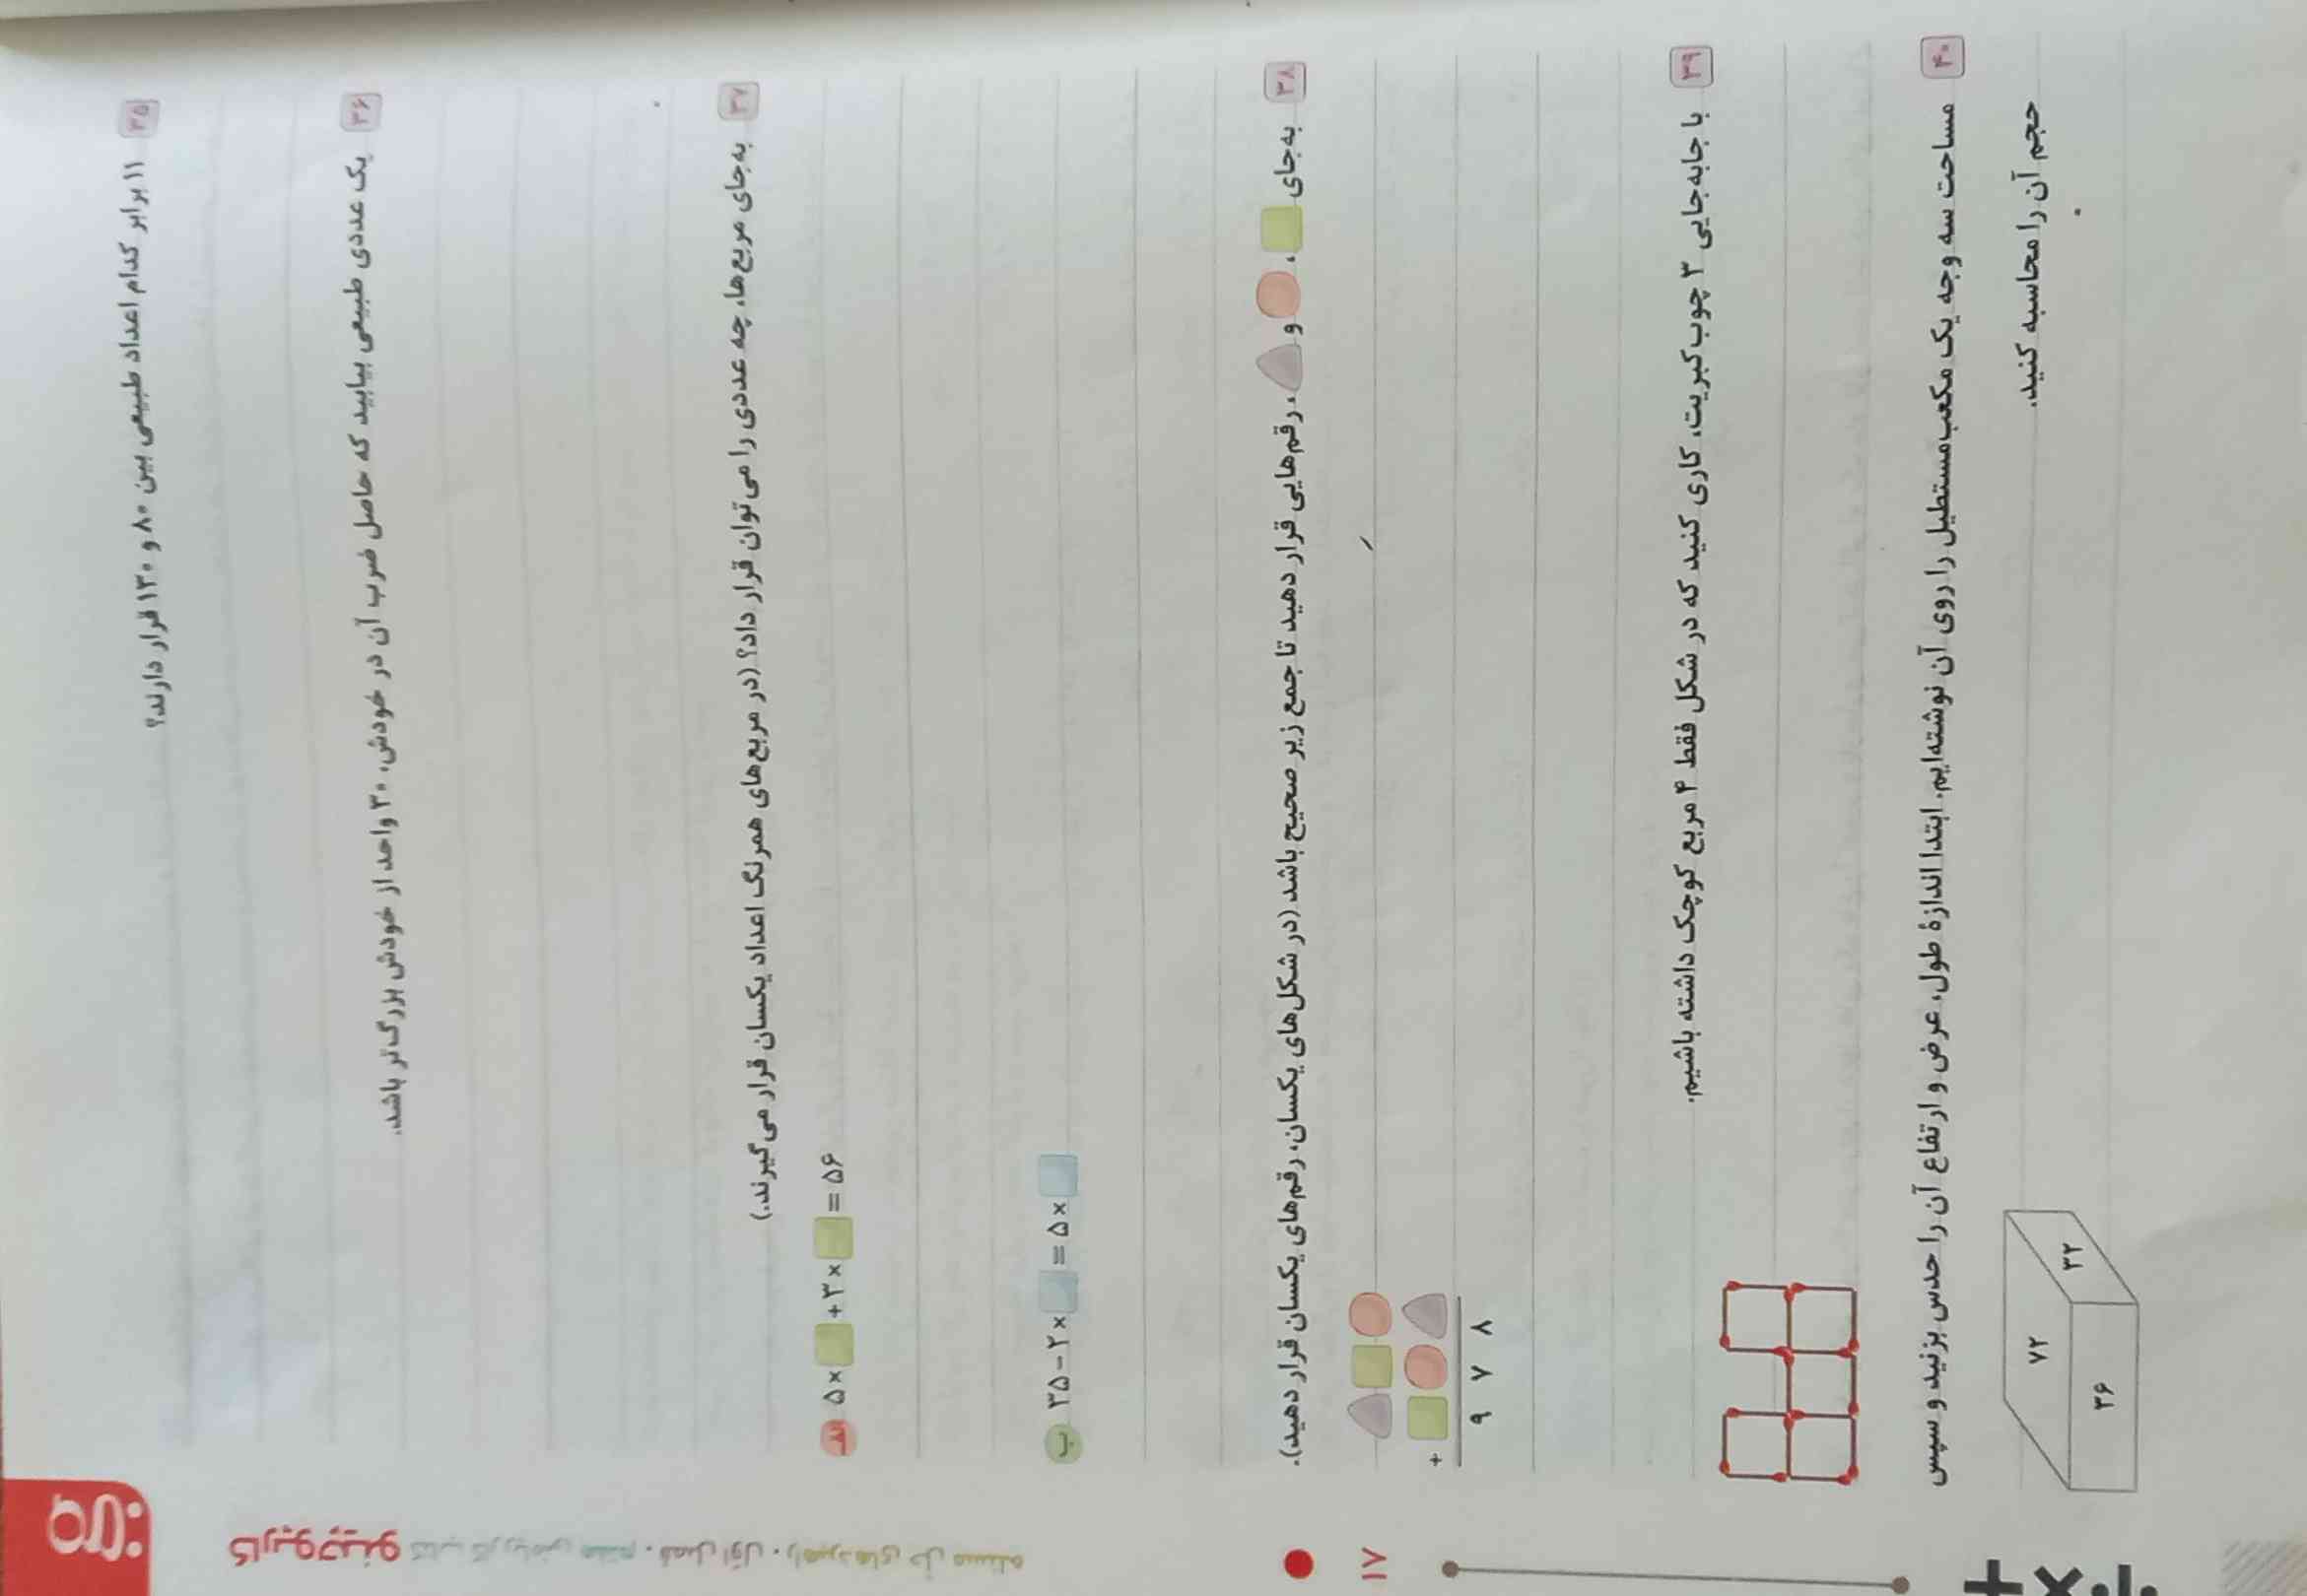 ۳۵ ۱۱ برابر کدام اعداد طبیعی بین ۸۰ و ۱۳۰ قرار دارند؟
۳۶ یک عددی طبیعی بیابید که حاصل ضرب آن در خودش، ۳۰ واحد از خودش بزرگ‌تر باشد.
۳۷ به‌جای مربع‌ها، چه عددی را می‌توان قرار داد؟ (در مربع‌های همرنگ اعداد یکسان قرار می‌گیرند.)
الف ۵× +۳× =۵۶
ب ۳۵-۲× =۵×
۳۸ به‌جای ، و ، رقم‌هایی قرار دهید تا جمع زیر صحیح باشد (در شکل‌های یکسان، رقم‌های یکسان قرار دهید).
+
۹ ۷ ۸
۳۹ با جابه‌جایی ۳ چوب‌کبریت، کاری کنید که در شکل فقط ۴ مربع کوچک داشته باشیم.
۴۰ مساحت سه وجه یک مکعب‌مستطیل را روی آن نوشته‌ایم. ابتدا اندازهٔ طول، عرض و ارتفاع آن را حدس بزنید و سپس
حجم آن را محاسبه کنید.
۷۲
۳۲
۳۶
کارپوچینو کتاب کار ریاضی هفتم • فصل اول • راهبردهای حل مسئله
۱۷
+
×
÷